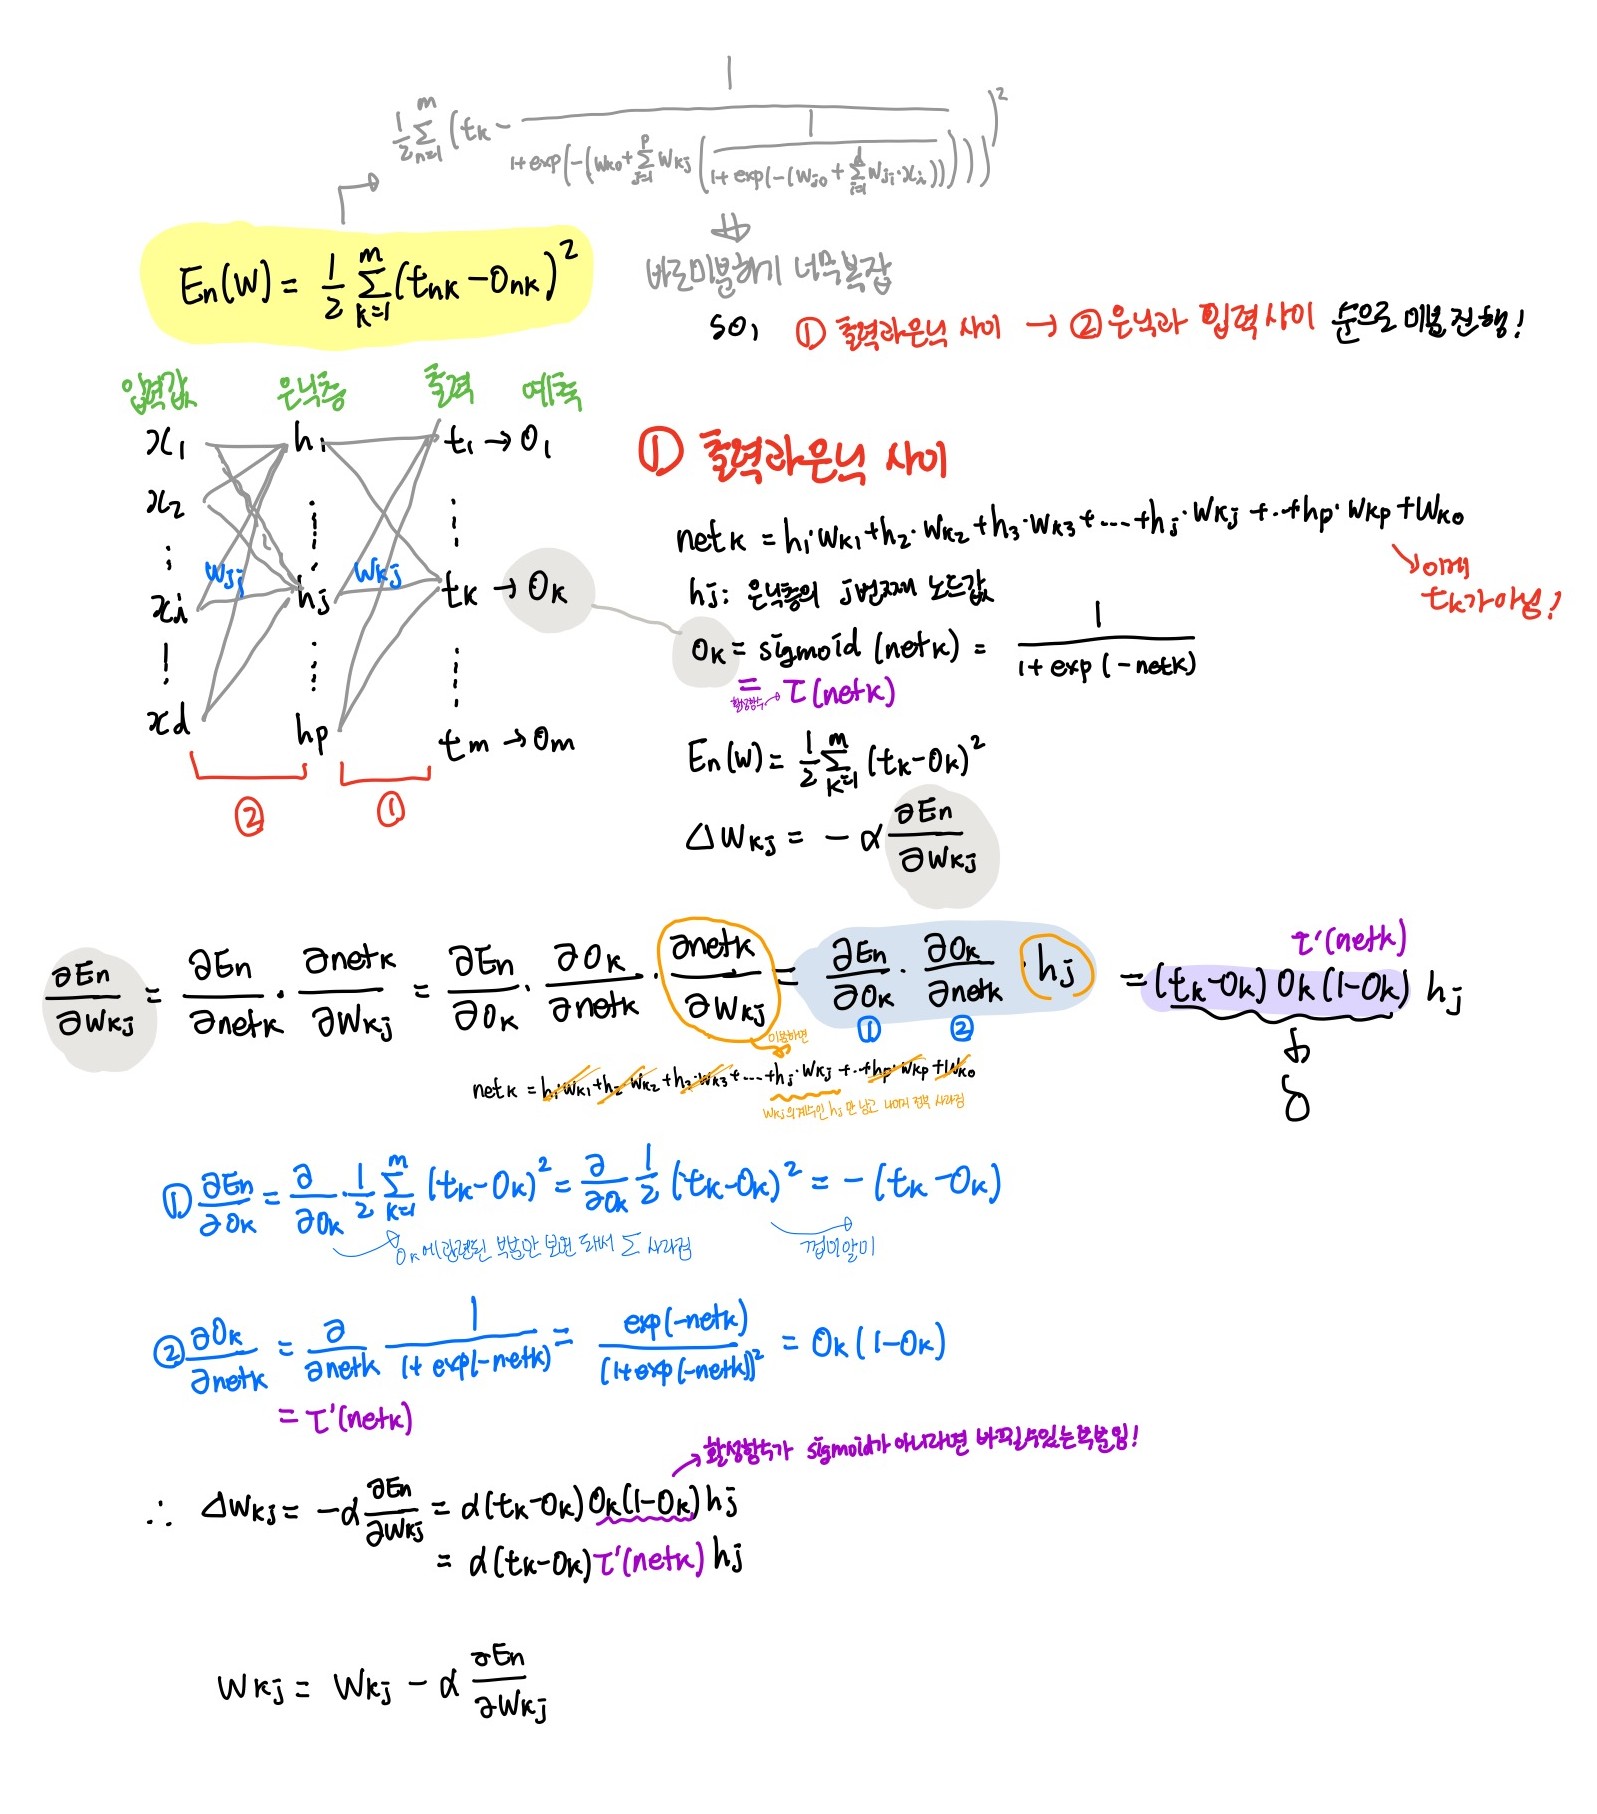 1/2 Σ_{n=1}^{m} (tk - 1/(1+exp(-(wk0+Σ_{j=1}^{p} wkj(1/(1+exp(-(wj0+Σ_{i=1}^{d} wji·xi))))))))²
En(w) = 1/2 Σ_{k=1}^{m} (tnk - Onk)²
바로미분하기 너무복잡
so, ① 출력과은닉 사이 → ②은닉과 입력사이 순으로 미분진행!
입력값 은닉층 출력 예측
x1 h1 t1 → O1
x2
wji wkj
xi hj tk → Ok
xd hp tm → Om
② ①
① 출력과은닉 사이
netk = h1·wk1+h2·wk2+h3·wk3+....+hj·wkj+..+hp·wkp+wk0
↘이때 tk가아님!
hj: 은닉층의 j번째 노드값
Ok = sigmoid (netk) = 1/(1+exp(-netk))
= 활성함수→ τ(netk)
En(w) = 1/2 Σ_{k=1}^{m} (tk-Ok)²
△wkj = -α ∂En/∂wkj
∂En/∂wkj = ∂En/∂netk · ∂netk/∂wkj = ∂En/∂Ok · ∂Ok/∂netk · ∂netk/∂wkj = ∂En/∂Ok · ∂Ok/∂netk · hj = (tk-Ok) Ok(1-Ok) hj
① ② τ'(netk)
δ
이용하면
netk = h1·wk1+h2·wk2+h3·wk3+....+hj·wkj+..+hp·wkp+wk0
wkj의계수인 hj 만 남고 나머지 전부 사라짐
① ∂En/∂Ok = ∂/∂Ok · 1/2 Σ_{k=1}^{m} (tk-Ok)² = ∂/∂Ok 1/2 (tk-Ok)² = -(tk-Ok)
Ok에관련된 부분만 보면 돼서 Σ 사라짐
② ∂Ok/∂netk = ∂/∂netk 1/(1+exp(-netk)) = exp(-netk)/(1+exp(-netk))² = Ok(1-Ok)
= τ'(netk)
→활성함수가 sigmoid가 아니라면 바뀔수있는부분임!
∴ △wkj = -α ∂En/∂wkj = α(tk-Ok) Ok(1-Ok) hj
= α(tk-Ok) τ'(netk) hj
wkj = wkj - α ∂En/∂wkj